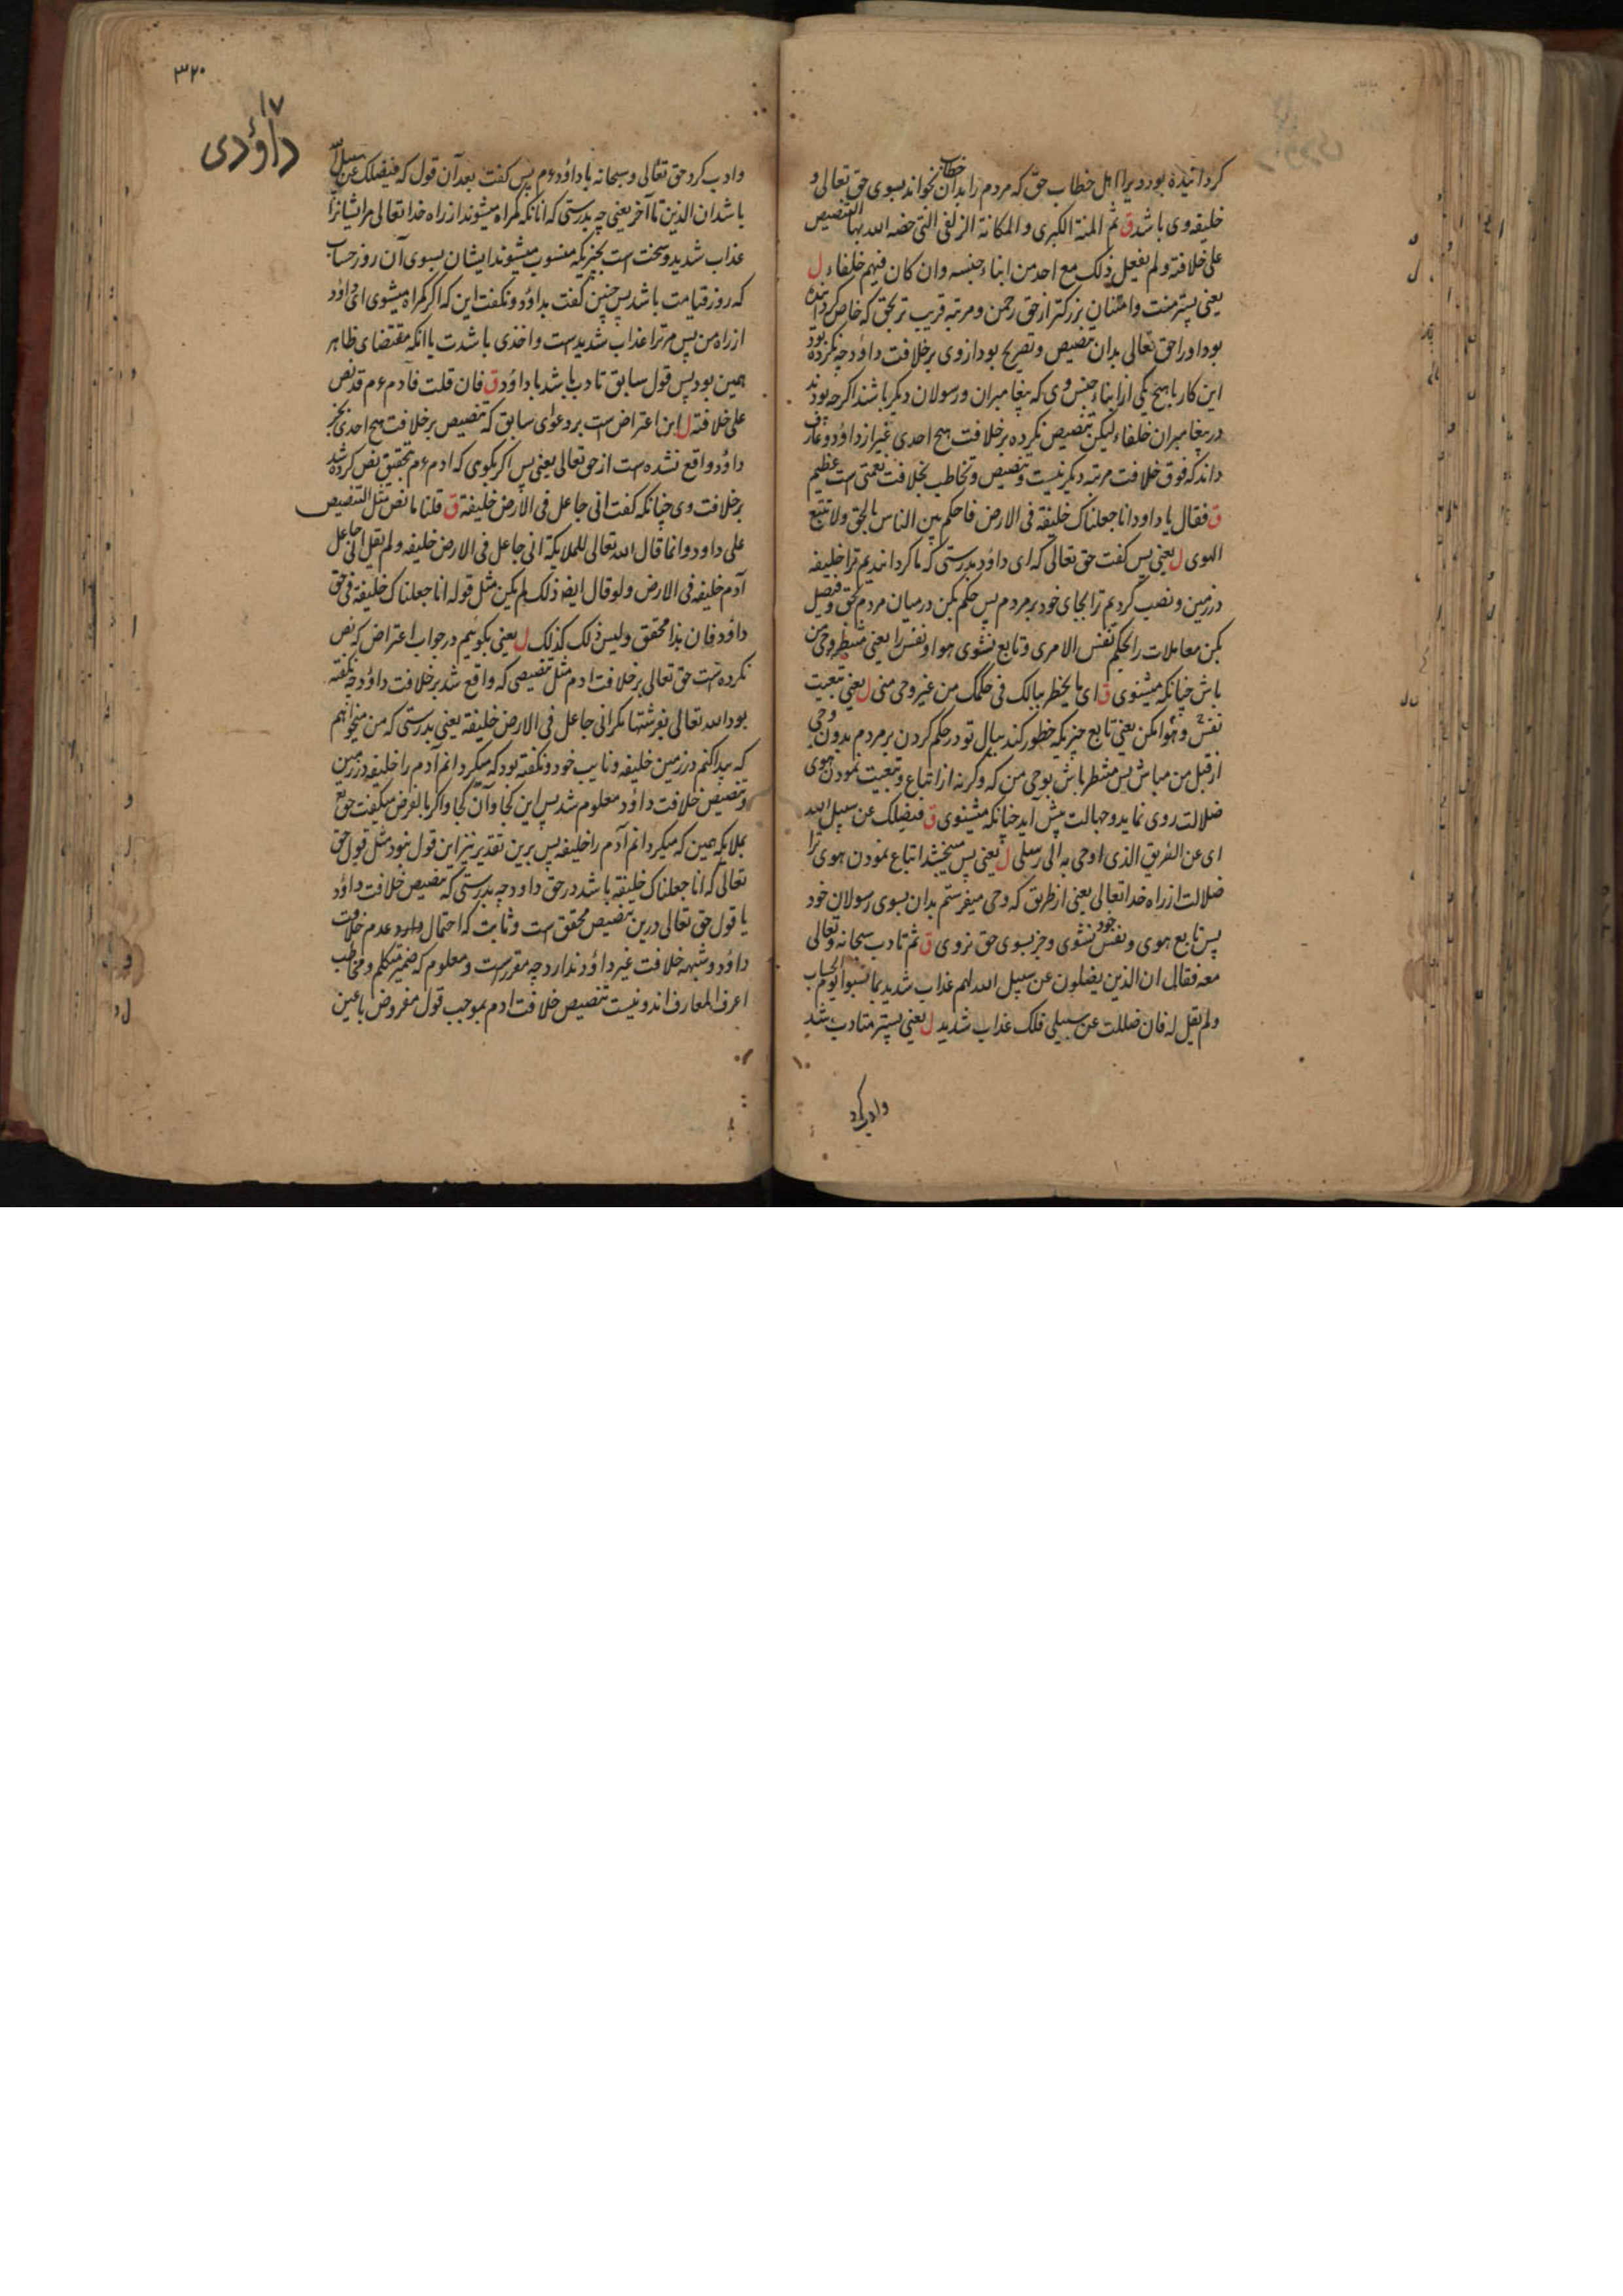 کردانیده بود ویرا اهل خطاب حق که مردم را بدان خطاب بخواند بسوی حق تعالی و
خلیفه وی باشد ق ثم المنة الکبری و المکانة الزلفی التی خصه الله بها التنصیص
علی خلافته ولم یفعل ذلک مع احد من ابناء جنسه وان کان فیهم خلفاء ل
یعنی پستر منت وامتنان بزرکتر از حق رحمن و مرتبه قریب تر بحق که خاص کردانیده
بود اورا حق تعالی بدان تنصیص و تصریح بود از وی بر خلافت داؤد چه نکرده بود
این کار با هیچ یکی از ابناء جنس وی که پیغامبران و رسولان دیکر باشند اکرچه بودند
در پیغامبران خلفاء لیکن تنصیص نکرده بر خلافت هیچ احدی غیر از داؤد و عارف
داند که فوق خلافت مرتبه دیکر نیست و تنصیص و تخاطب بخلافت نعمتی است عظیم
ق فقال یا داود انا جعلناک خلیفة فی الارض فاحکم بین الناس بالحق ولا تتبع
الهوی ل یعنی پس کفت حق تعالی که ای داؤد بدرستی که ما کردانیدیم ترا خلیفه
در زمین و نصب کردیم ترا بجای خود بر مردم پس حکم بکن در میان مردم بحق و فیصل
بکن معاملات را بحکم نفس الامری و تابع نشوی هوا و نفس را یعنی منتظر وحی من
باش چنانکه میشنوی ق ای ما یخطر ببالک فی حکمک من غیر وحی منی ل یعنی تبعیت
نفس و هوا مکن یعنی تابع چیزیکه خطور کند ببال تو در حکم کردن بر مردم بدون وحی
از قبل من مباش پس منتظر باش بوحی من که وکرنه از اتباع و تبعیت نمودن هوی
ضلالت روی نماید و جهالت پیش آید چنانکه میشنوی ق فیضلک عن سبیل الله
ای عن الطریق الذی اوحی به الی رسلی ل یعنی پس میبخشد اتباع نمودن هوی ترا
ضلالت از راه خدا تعالی یعنی از طریق که وحی میفرستم بدان بسوی رسولان خود
پس تابع هوی و نفس خود نشوی و جز بسوی حق نروی ق ثم تادب سبحانه وتعالی
معه فقال ان الذین یضلون عن سبیل الله لهم عذاب شدید بما نسوا یوم الحساب
ولم یقل له فان ضللت عن سبیلی فلک عذاب شدید ل یعنی پستر متادب شد
وادب کرد
۳۲۰
۱۷
داؤدی
وادب کرد حق تعالی و سبحانه با داؤد ءم پس کفت بعد آن قول که فیضلک عن سبیل الله
باشد ان الذین تا آخر یعنی چه بدرستی که انانکه کمراه میشوند از راه خدا تعالی مر ایشانرا
عذاب شدید و سخت است بچیزیکه منسوب میشوند ایشان بسوی آن روز حساب
که روز قیامت باشد پس چنین کفت بداؤد و نکفت این که اکر کمراه میشوی ای داؤد
از راه من پس مر ترا عذاب شدید است و اخذی باشدت با انکه مقتضای ظاهر
همین بود پس قول سابق تادب باشد با داؤد ق فان قلت فادم ءم قد نص
علی خلافته ل این اعتراض است بر دعوای سابق که تنصیص بر خلافت هیچ احدی بجز
داؤد واقع نشده است از حق تعالی یعنی پس اکر بکوی که ادم ءم بتحقیق نص کرده شد
بر خلافت وی چنانکه کفت انی جاعل فی الارض خلیفة ق قلنا ما نص مثل التنصیص
علی داود وانما قال الله تعالی للملایکة انی جاعل فی الارض خلیفه ولم یقل انی جاعل
آدم خلیفه فی الارض ولو قال ایضا ذلک لم یکن مثل قوله انا جعلناک خلیفة فی حق
داؤد فان هذا محقق ولیس ذلک کذلک ل یعنی بکوئیم در جواب اعتراض که نص
نکرده است حق تعالی بر خلافت ادم مثل تنصیصی که واقع شد بر خلافت داؤد چه نکفته
بود الله تعالی بفرشتها مکر انی جاعل فی الارض خلیفة یعنی بدرستی که من میخواهم
که پیدا کنم در زمین خلیفه و نایب خود و نکفته بود که میکردانم آدم را خلیفه در زمین
و تنصیص خلافت داؤد معلوم شد پس این کجا و آن کجا و اکر بالفرض میکفت حق تع
بملایکه همین که میکردانم آدم را خلیفه پس برین تقدیر نیز این قول نبود مثل قول حق
تعالی که انا جعلناک خلیفة باشد در حق داود چه بدرستی که تنصیص خلافت داؤد
یا قول حق تعالی درین تنصیص محقق است و ثابت که احتمال عدم خلافت
داؤد و شبهه خلافت غیر داؤد ندارد چه مقرر است و معلوم که ضمیر متکلم و مخاطب
اعرف المعارف اند و نیست تنصیص خلافت ادم بموجب قول مفروض باعین